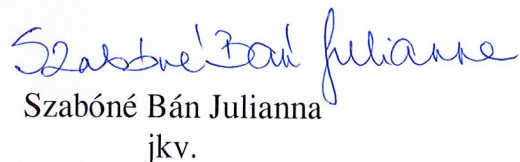 Szabóné Bán Julianne
Szabóné Bán Julianna
jkv.